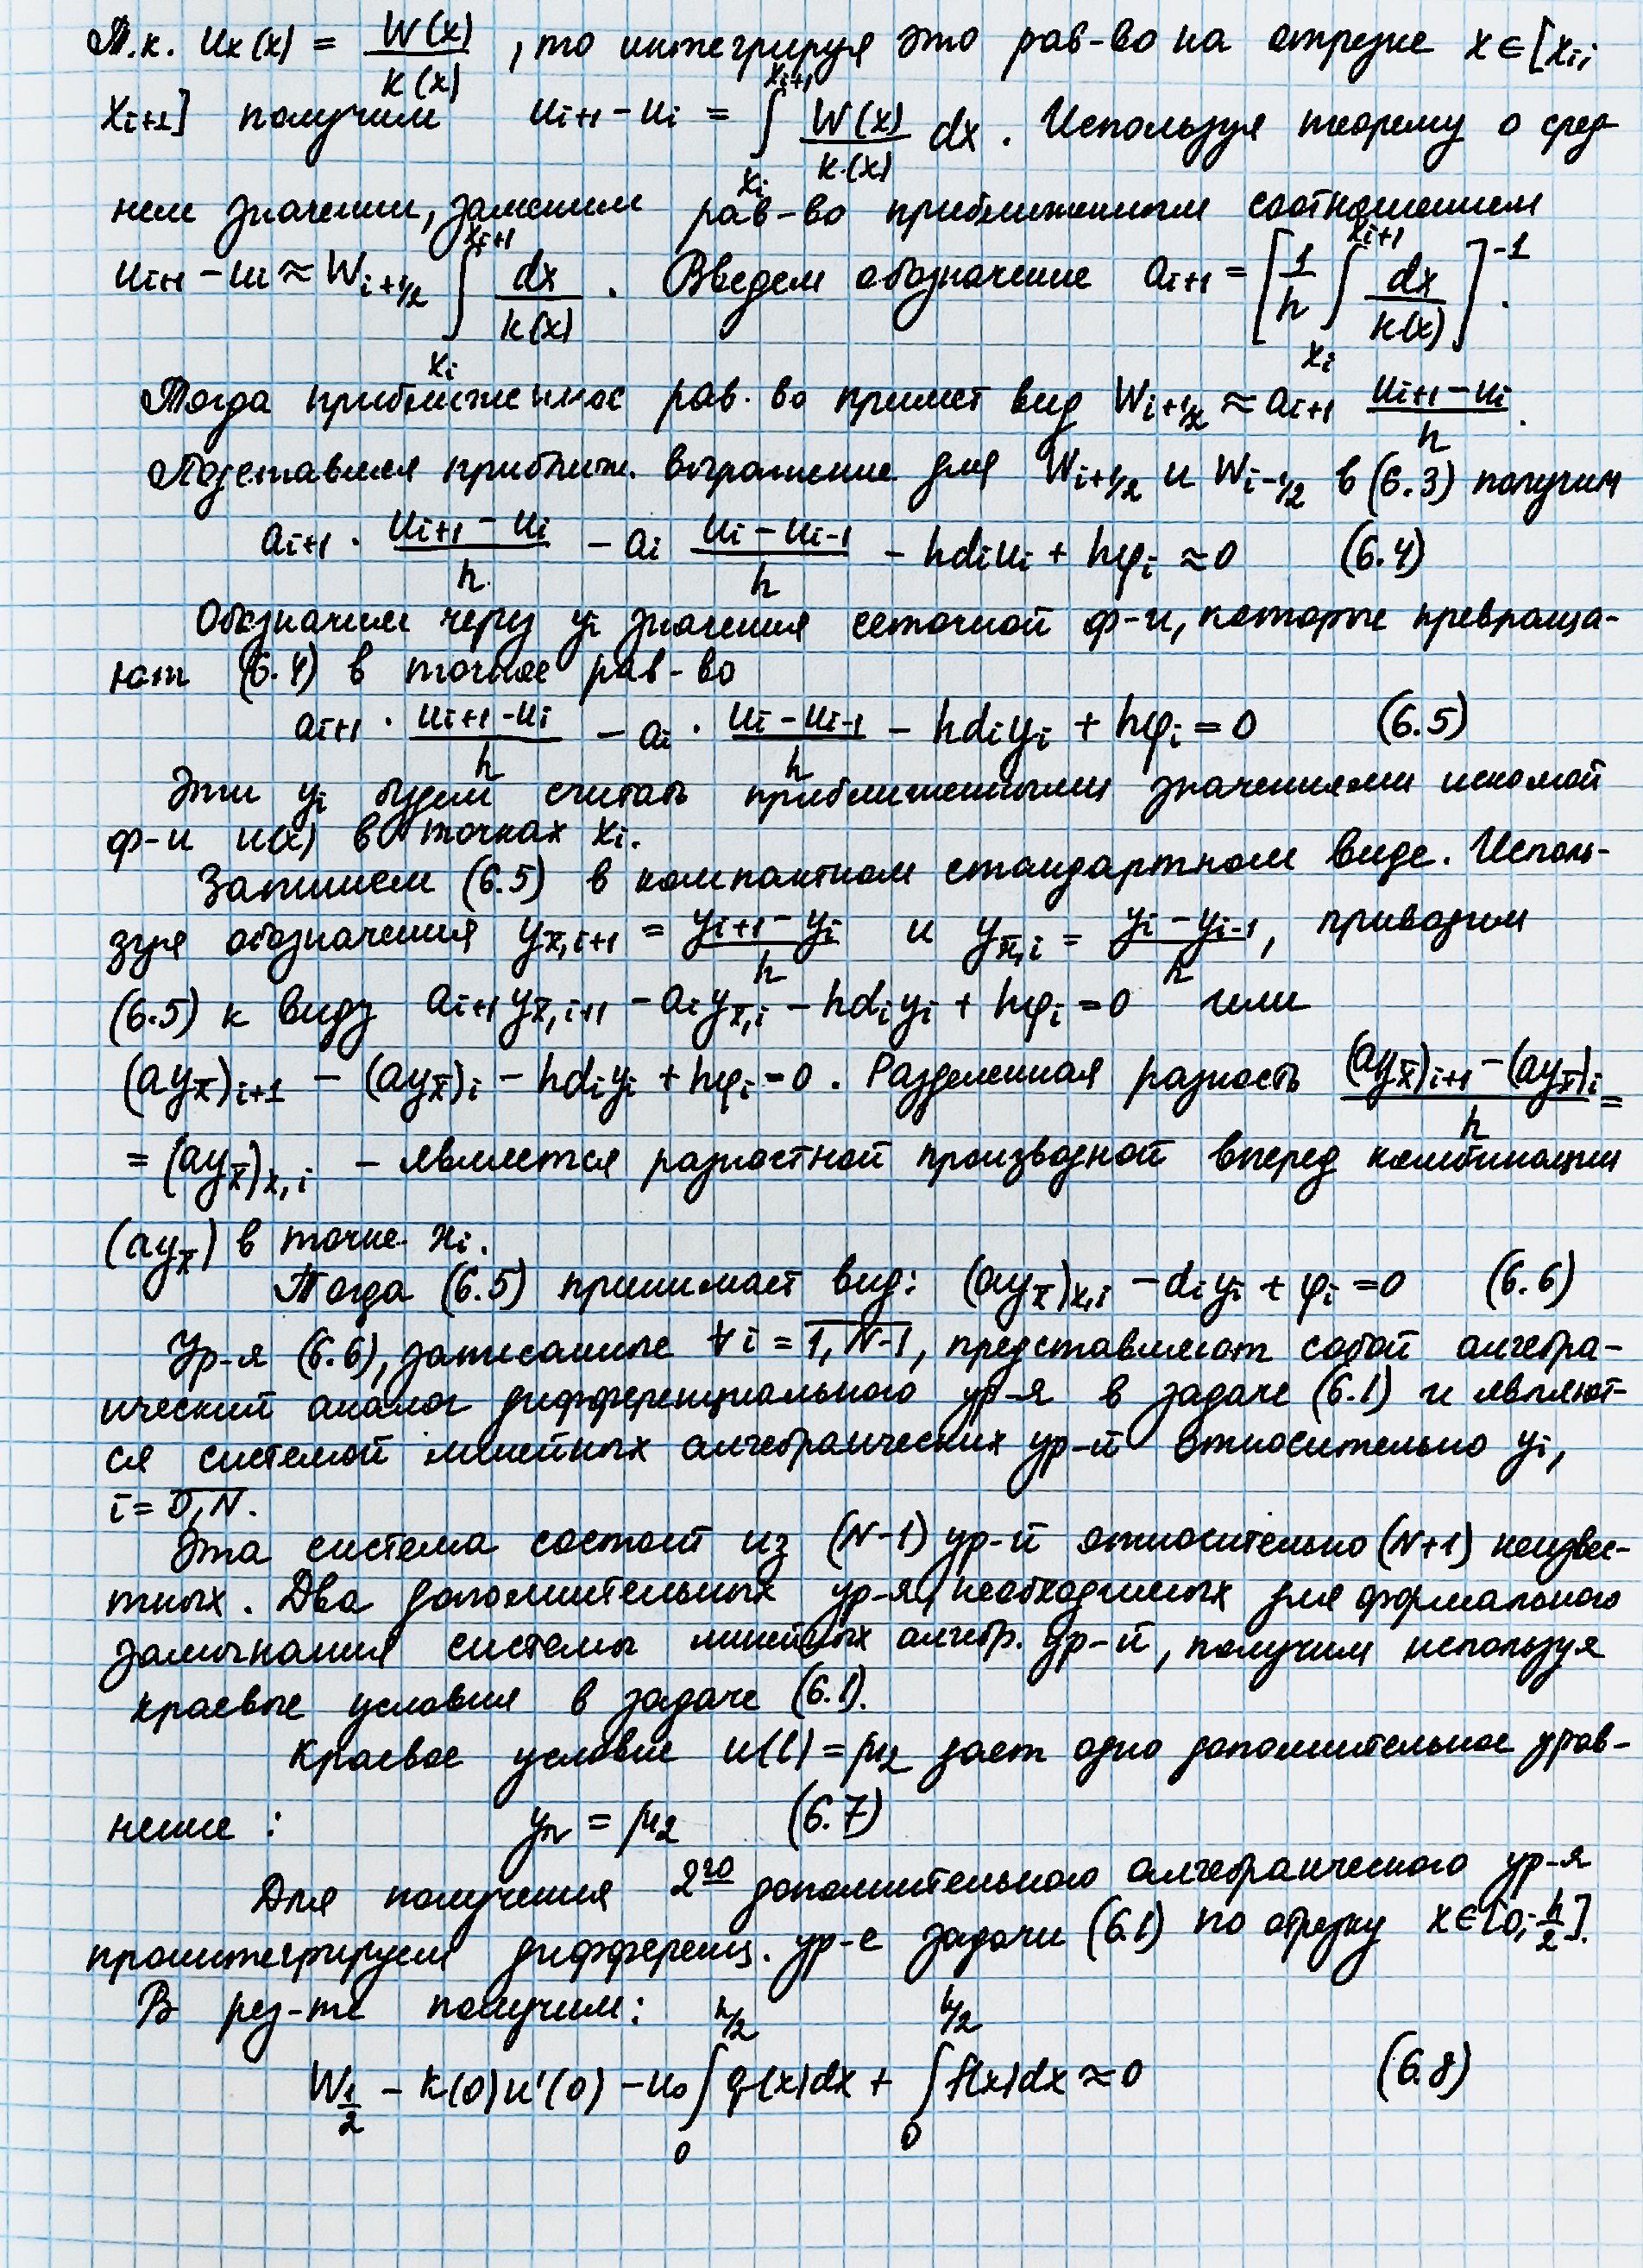 Т.к. uₓ(x) = W(x)/k(x), то интегрируя это рав-во на отрезке x∈[xᵢ;
xᵢ₊₁] получим uᵢ₊₁ - uᵢ = ∫_{xᵢ}^{xᵢ₊₁} W(x)/k(x) dx. Используя теорему о сред-
нем значении, заменим рав-во приближенным соотношением
uᵢ₊₁ - uᵢ ≈ W_{i+1/2} ∫_{xᵢ}^{xᵢ₊₁} dx/k(x). Введем обозначение aᵢ₊₁ = [1/h ∫_{xᵢ}^{xᵢ₊₁} dx/k(x)]⁻¹.
Тогда приближенное рав-во примет вид W_{i+1/2} ≈ aᵢ₊₁ (uᵢ₊₁ - uᵢ)/h.
Подставляя приближ. выражение для W_{i+1/2} и W_{i-1/2} в (6.3) получим
aᵢ₊₁ · (uᵢ₊₁ - uᵢ)/h - aᵢ (uᵢ - uᵢ₋₁)/h - hdᵢuᵢ + hφᵢ ≈ 0 (6.4)
Обозначим через yᵢ значения сеточной ф-и, которые превраща-
ют (6.4) в точное рав-во
aᵢ₊₁ · (uᵢ₊₁ - uᵢ)/h - aᵢ · (uᵢ - uᵢ₋₁)/h - hdᵢyᵢ + hφᵢ = 0 (6.5)
Эти yᵢ будем считать приближенными значениями искомой
ф-и u(x) в точках xᵢ.
Запишем (6.5) в компактном стандартном виде. Исполь-
зуя обозначения y_{x̄,i+1} = (yᵢ₊₁ - yᵢ)/h и y_{x̄,i} = (yᵢ - yᵢ₋₁)/h, приводим
(6.5) к виду aᵢ₊₁y_{x̄,i+1} - aᵢy_{x̄,i} - hdᵢyᵢ + hφᵢ = 0 или
(ay_x̄)ᵢ₊₁ - (ay_x̄)ᵢ - hdᵢyᵢ + hφᵢ = 0. Разделенная разность ((ay_x̄)ᵢ₊₁ - (ay_x̄)ᵢ)/h =
= (ay_x̄)_{x,i} - является разностной производной вперед комбинации
(ay_x̄) в точке xᵢ.
Тогда (6.5) принимает вид: (ay_x̄)_{x,i} - dᵢyᵢ + φᵢ = 0 (6.6)
Ур-я (6.6), записанные ∀ i = \overline{1, N-1}, представляют собой алгебра-
ический аналог дифференциального ур-я в задаче (6.1) и являют-
ся системой линейных алгебраических ур-й относительно yᵢ,
i = \overline{0, N}.
Эта система состоит из (N-1) ур-й относительно (N+1) неизвес-
тных. Два дополнительных ур-я, необходимых для формального
замыкания системы линейных алгебр. ур-й, получим используя
краевые условия в задаче (6.1).
Краевое условие u(l) = μ₂ дает одно дополнительное урав-
нение: y_N = μ₂ (6.7)
Для получения 2го дополнительного алгебраического ур-я
проинтегрируем дифференц. ур-е задачи (6.1) по отрезку x∈[0; h/2].
В рез-те получим:
W_{1/2} - k(0)u'(0) - u₀ ∫_0^{h/2} q(x)dx + ∫_0^{h/2} f(x)dx ≈ 0 (6.8)